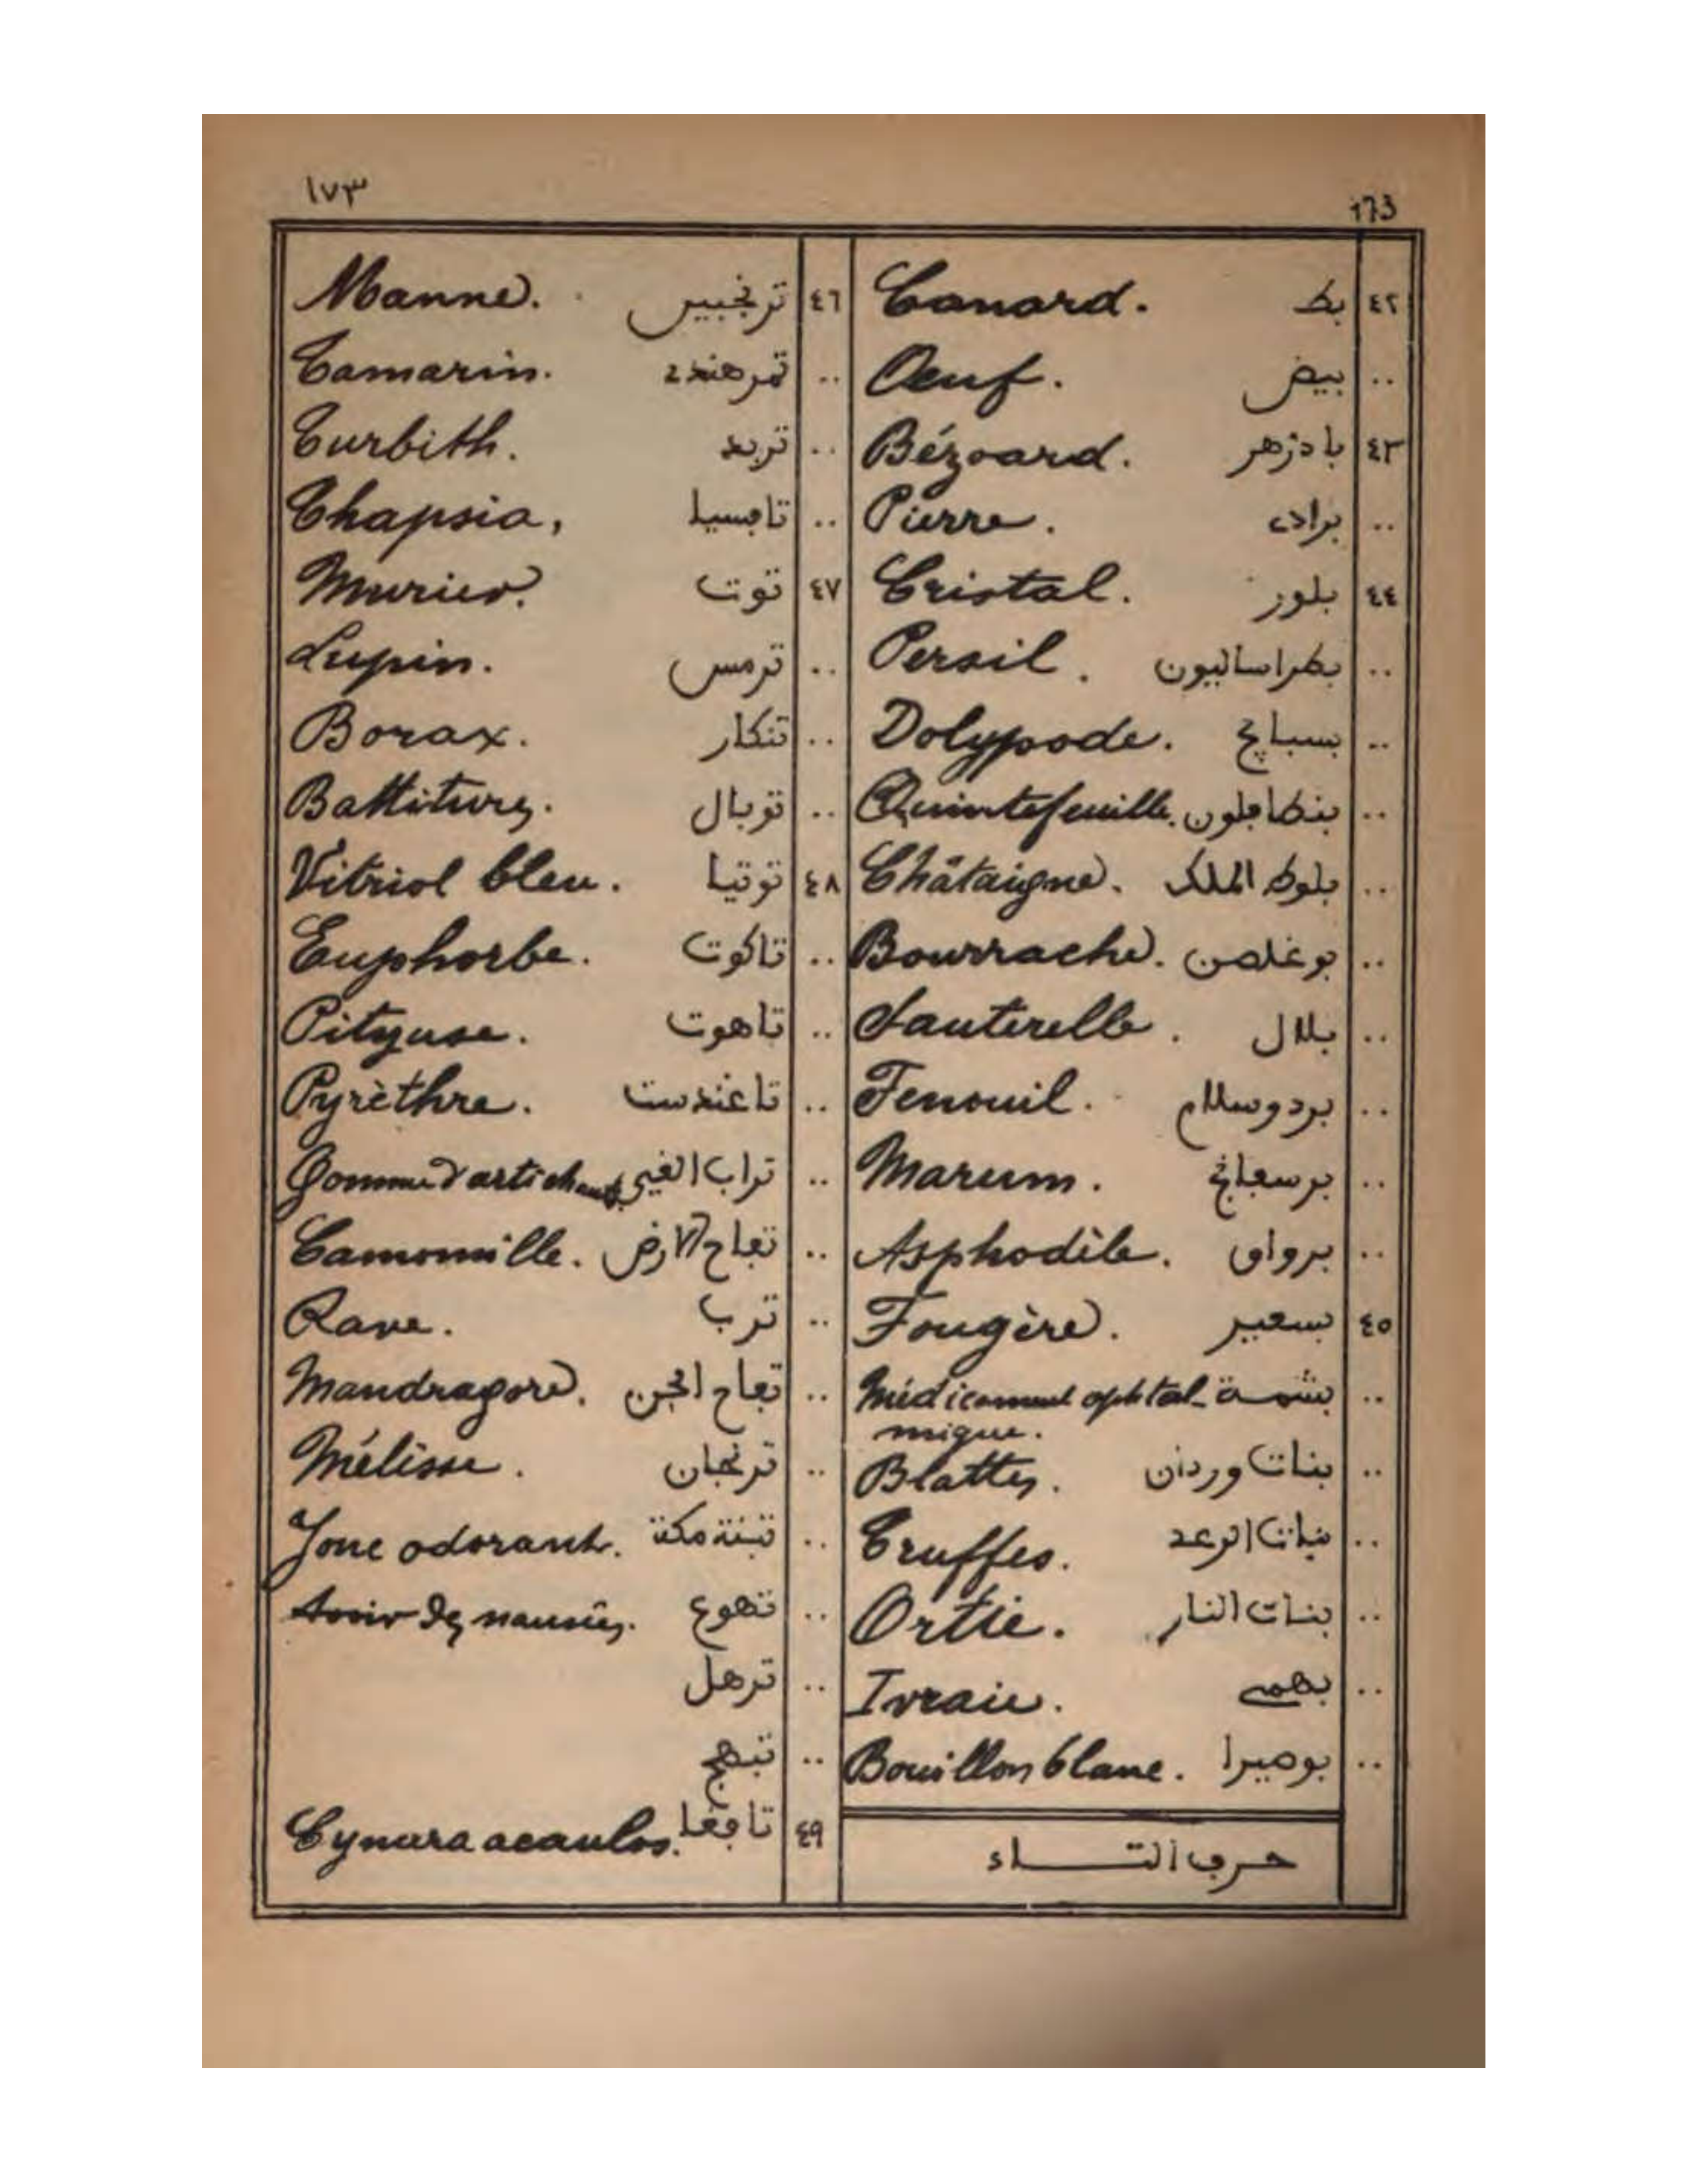 ١٧٣
173
٤٢ بط Canard.
.. بيض Oeuf.
٤٣ بادزهر Bézoard.
.. برادى Pierre.
٤٤ بلور Cristal.
.. بطراساليون Persil.
.. بسبايج Polypode.
.. بنطافلون Quintefeuille.
.. بلوط الملك Châtaigne.
.. بوغلصن Bourrache.
.. بلال Sauterelle.
.. بردوسلام Fenouil.
.. Marum.
.. برواق Asphodèle.
٤٥ بسعير Fougère.
.. بشمة Médicament ophtal-
mique.
.. بنات وردان Blattes.
.. بنات الرعد Truffes.
.. بنات النار Ortie.
.. بهمى Ivraie.
.. بوصيرا Bouillon blanc.
حرف التاء
٤٦ ترنجبين Manne.
.. تمر هندى Tamarin.
.. تربد Turbith.
.. تافسيا Thapsia,
٤٧ توت Murier.
.. ترمس Lupin.
.. تنكار Borax.
.. توبال Battitures.
٤٨ توتيا Vitriol bleu.
.. تاكوت Euphorbe.
.. تاهوت Pityuse.
.. تاغندست Pyrèthre.
.. تراب القي Gomme d'artichaut
.. تفاح الارض Camomille.
.. ترب Rave.
.. تفاح الجن Mandragore.
.. ترنجان Mélisse.
.. تبنة مكة Jonc odorant.
.. تهوع Avoir des nausées.
.. ترهل
.. تبهج
٤٩ تافغا Cynara acaulos.